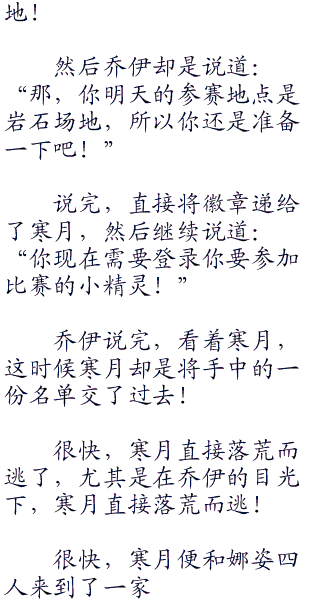 地！
然后乔伊却是说道：
“那，你明天的参赛地点是
岩石场地，所以你还是准备
一下吧！”
说完，直接将徽章递给
了寒月，然后继续说道：
“你现在需要登录你要参加
比赛的小精灵！”
乔伊说完，看着寒月，
这时候寒月却是将手中的一
份名单交了过去！
很快，寒月直接落荒而
逃了，尤其是在乔伊的目光
下，寒月直接落荒而逃！
很快，寒月便和娜姿四
人来到了一家